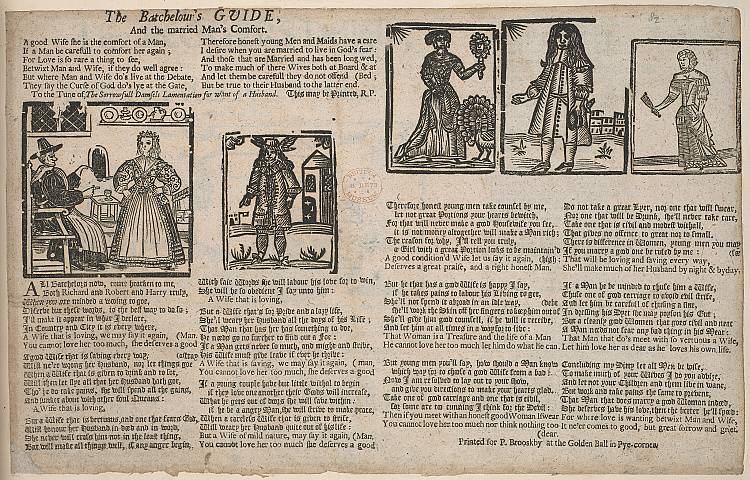 The Batchelour's GVIDE,
And the married Man's Comfort.
A good Wife she is the comfort of a Man,
If a Man be carefull to comfort her again;
For Love is so rare a thing to see,
Betwixt Man and Wife, if they do well agree:
But where Man and Wife do's live at the Debate,
They say the Curse of God do's lye at the Gate,
Therefore honest young Men and Maids have a care
I desire when you are married to live in God's fear:
And those that are Married and has been long wed,
To make much of there Wives both at Board & at
And let them be carefull they do not offend (Bed;
But be true to their Husband to the latter end.
To the Tune of, The Sorrowfull Damsels Lamentation for want of a Husband. This may be Printed, R.P.
ALl Batchelors now, come hearken to me,
Both Richard and Robert and Harry truly,
When you are minded a wooing to goe,
Observe but these words, is the best way to do;
I'll make it appear in what I declare
In Country and City it is every where,
A Wife that is loving, we may say it again, (Man,
You cannot love her too much, she deserves a good
A good Wife that is saving every way, (astray
Will ne'r wrong her Husband, nor let things goe
When a Wife that is given to drink and to
Will then let flye all that her Husband hath got,
Tho' he do take pains, she will spend all the gains,
And hunker about with other foul Queans:
A Wife that is loving,
But a Wife that is vertuous, and one that fears God,
Will honour her Husband in deed and in word,
She never will cross him not in the least thing,
But will make all things well, if any anger begin,
With fair Words she will labour his love for to win,
She will be so obedient I say unto him:
A Wife that is loving.
But a Wife that is for Pride and a lazy life,
She'll weary her Husband all the days of his Life;
That Man that has her has something to doe,
he needs go no further to find out a Foe:
If a Man gets never so much, and might and strive,
His Wife must give leave if ever he thrive:
A Wife that is saving, we say it again, (man,
You cannot love her too much, she deserves a good
If a young couple have but little withal to begin
if they love one another their Goods will increase,
When he gets out of doors she will save within:
if he be a angry Man, she will strive to make peace,
When a careless Wife that is given to strife,
Will weary her Husband quite out of his life:
But a Wife of mild nature, may say it again, (Man.
You cannot love her too much she deserves a good
Therefore honest young men take counsel by me,
let not great Portions your hearts bewitch,
For that will never make a good Housewife you see,
it is not money altogether will make a Man rich;
The reason for why, I'll tell you truly,
a Girl with a great Portion looks to be maintain'd
A good condition'd Wife let us say it again, (high:
Deserves a great praise, and a right honest Man.
But he that has a good Wife is happy I say,
if he takes pains to labour his Living to get,
She'll not spend it abroad in an Idle way, (debt
she'll work the Skin of her Fingers to keep him out of
She'll give him good counsel, if he will it receive,
And set him at all times in a way for to live:
That Woman is a Treasure and the Life of a Man
He cannot love her too much let him do what he can.
But you young men you'll say, how should a Man know
which way for to chose a good Wife from a bad:
Now I am resolved to lay out to your show,
and give you directions to make your hearts glad.
Take one of good carriage and one that is civil,
for some are too cunning I think for the Devil:
Then if you meet with an honest good Womon I swear
You cannot love her too much nor think nothing too
(dear.
Do not take a great Lyer, nor one that will swear,
Nor one that will be Drunk, she'll never take care,
Take one that is civil and modest withall,
That gives no offence to great nor to small,
There is difference in Women, young men you may
If you marry a good one be ruled by me: (see
That will be loving and saving every way,
She'll make much of her Husband by night & by day.
If a Man be he minded to chuse him a Wife,
Chuse one of good carriage to avoid evil strife,
And let him be careful of chusing a slut,
In dressing his Dyet she may poyson his Gut,
But a cleanly good Women that goes civil and neat
A Man need not fear any bad thing in his Meat
That Man that do's meet with so vertuous a Wife,
Let him love her as dear as he loves his own life.
Concluding my Ditty let all Men be wise,
To make much of your Wives I do you advise,
And let not your Children and them live in want,
But work and take pains the same to prevent,
That Man that does marry a good Woman indeed,
She deserves have his love, then the better he'll speed:
For where love is wanting betwixt Man and Wife,
It ne'er comes to good, but great sorrow and grief.
Printed for P. Brooskby at the Golden Ball in Pye-corner.